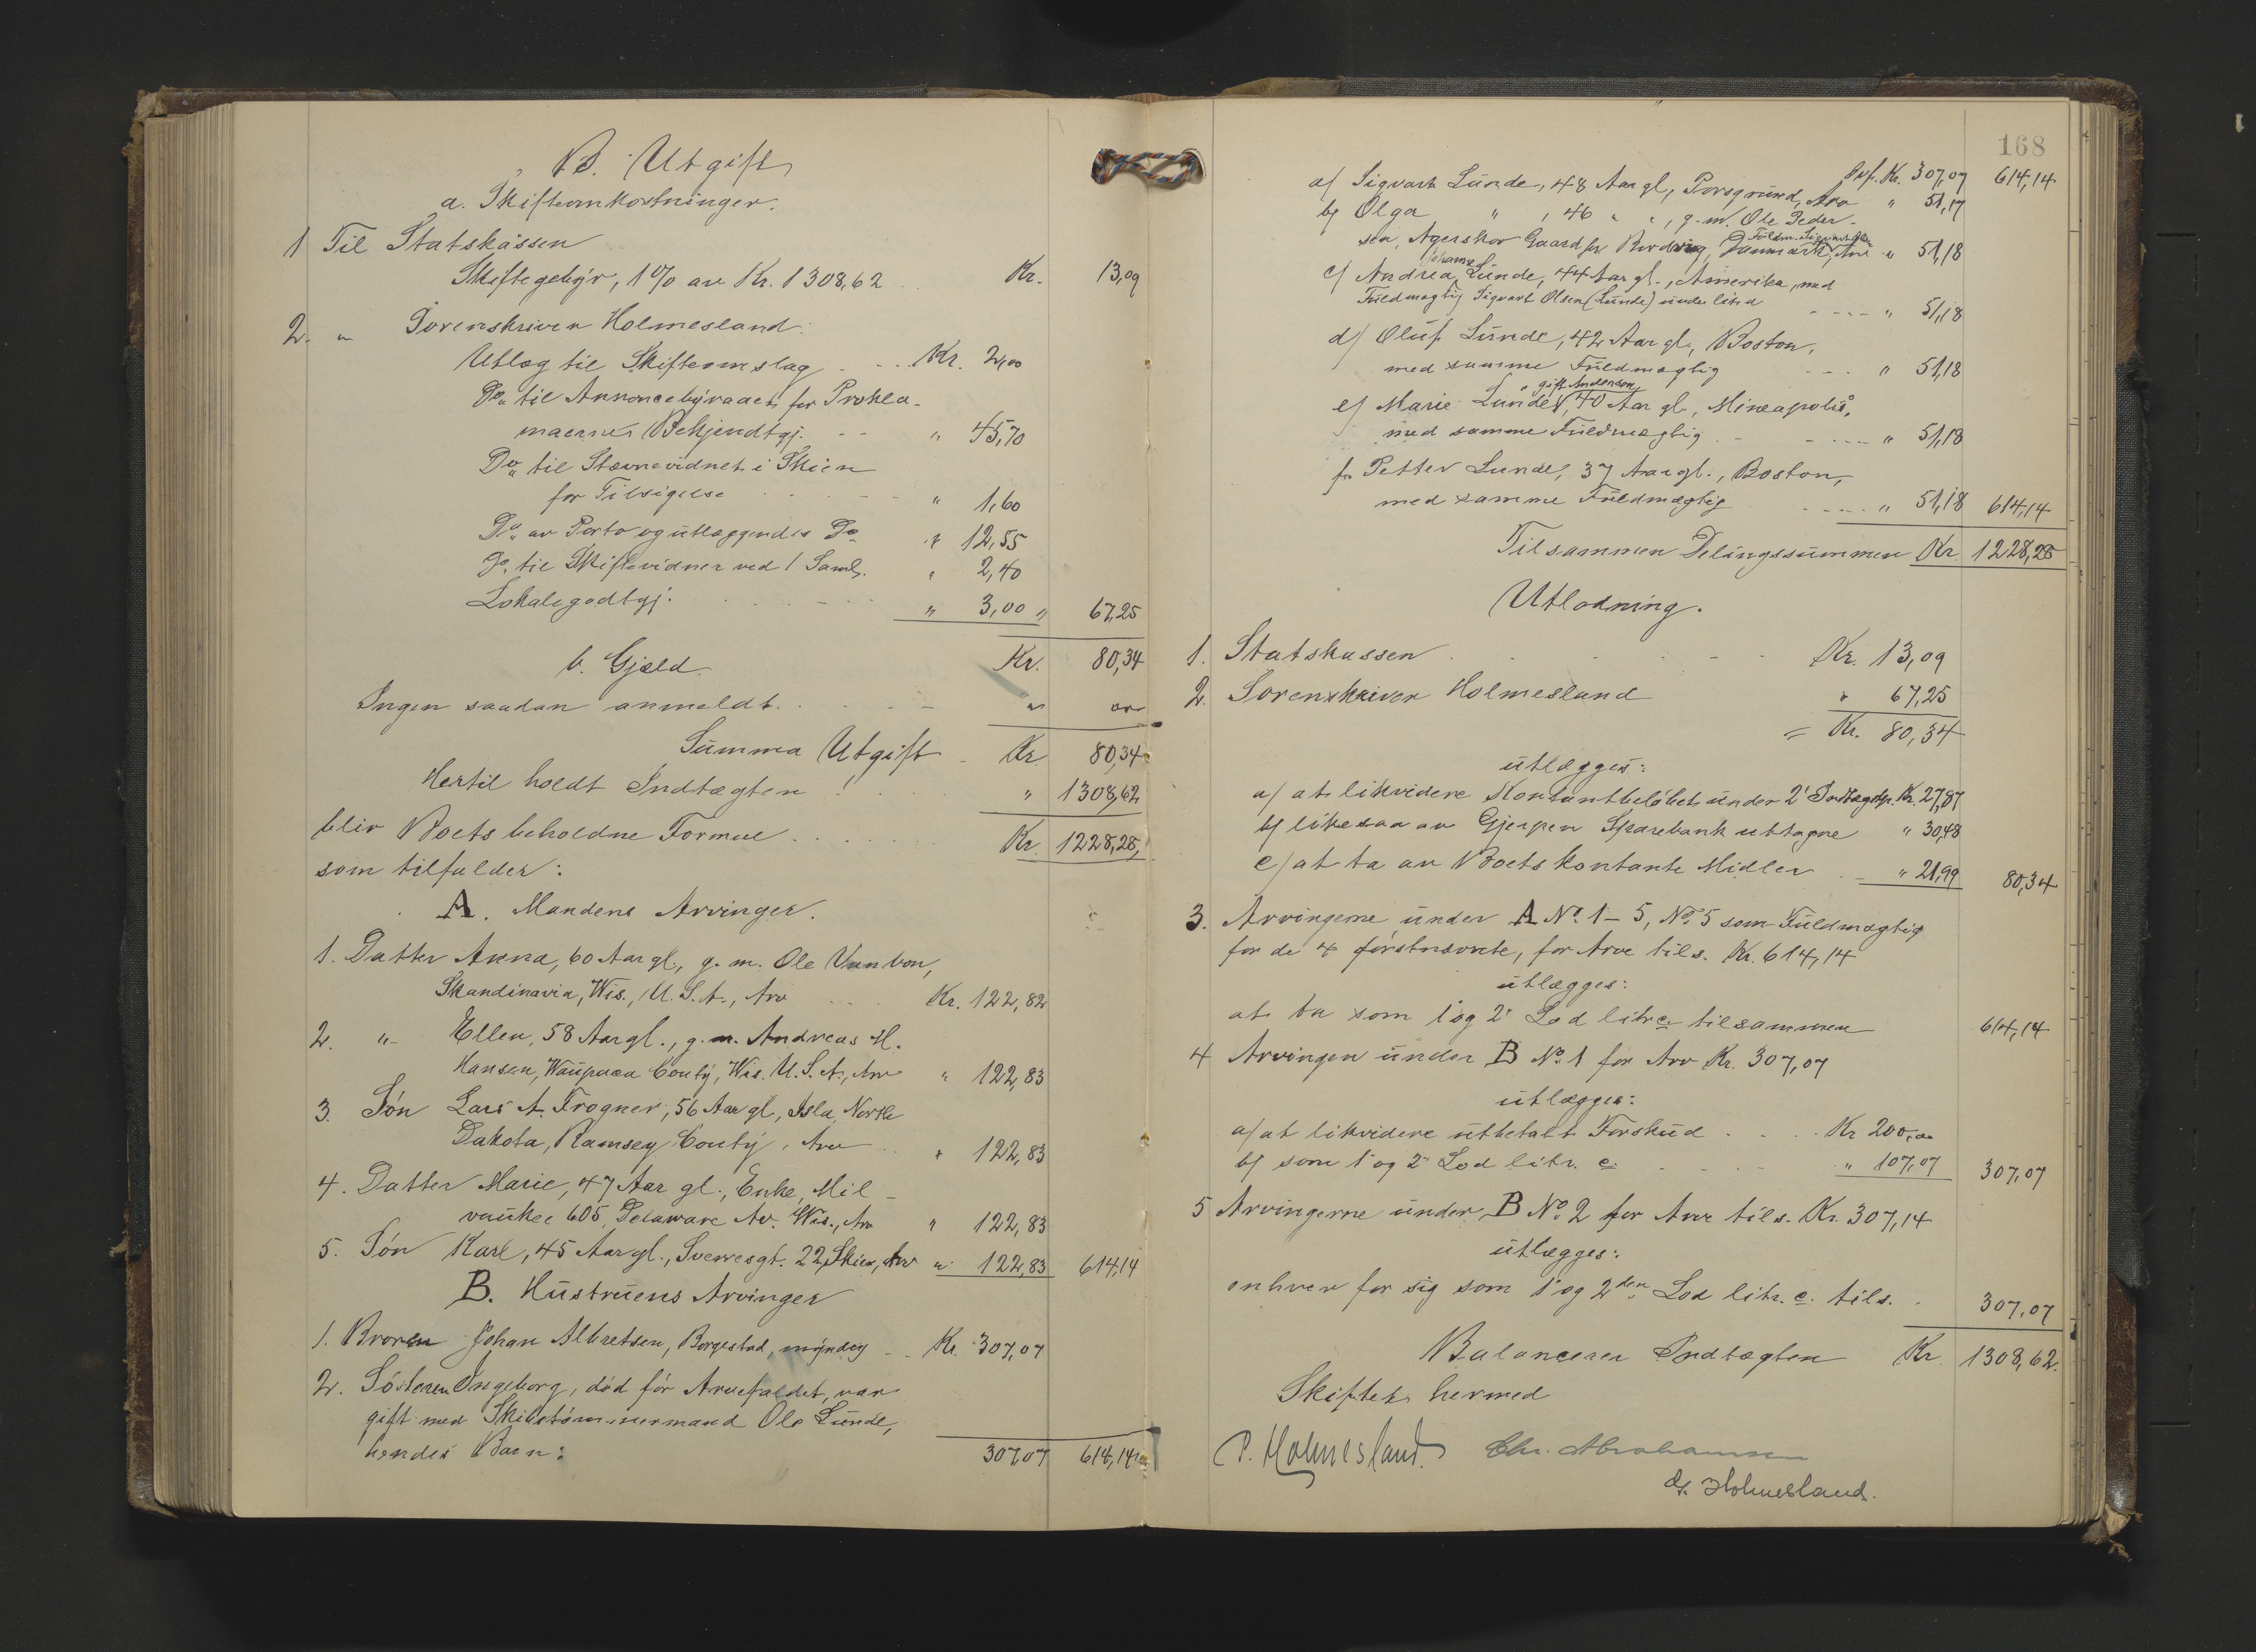 B. Utgift
a. Skifteomkostninger.
1 Til Statskassen
Skiftegebyr, 1% av Kr. 1308,62 Kr. 13,09
2. " Sorenskriver Holmesland:
Utlæg til Skifteomslag . . . Kr. 2,00
Do. til Annoncebyraaet for Prokla-
maernes Bekjendtgj. - - " 45,70
Do. til Stævnevidnet i Skien
for Tilsigelse . . . . - - " 1,60
Do. av Porto og utlæggendes Do " 12,55
Do. til Skiftevidner ved 1 Saml. " 2,40
Lokalegodtgj. . . . . " 3,00 " 67,25
Kr. 80,34
b. Gjæld.
Ingen saadan anmeldt. . . . - " 00
Summa Utgift - Kr. 80,34
Hertil holdt Indtægten . . . " 1308,62
blir Boets beholdne Formue . . . . Kr. 1228,28,
som tilfalder:
A. Mandens Arvinger.
1. Datter Anna, 60 Aar gl., g. m. Ole Vambon,
Skandinavia, Wis., U. S. A., Arv ... Kr. 122,82
2. " Ellen, 58 Aar gl., g. m. Andreas H.
Hansen, Waupaca Couty, Wis. U. S. A., Arv " 122,83
3. Søn Lars A. Frogner, 56 Aar gl, Isla, North
Dakota, Ramsey Couty, Arv .. " 122,83
4. Datter Marie, 47 Aar gl., Enke, Mil-
vaukee 605, Delaware Av. Wis., Arv " 122,83
5. Søn Karl, 45 Aar gl., Sverresgt. 22, Skien, Arv " 122,83 614,14
B. Hustruens Arvinger
1. Broren Johan Albretsen, Borgestad, myndig - - Kr. 307,07
2. Søsteren Ingeborg, død før Arvefaldet, var
gift med Skibstømmermand Ole Lunde,
hendes Barn: 307,07 614,14
168
Ovf. Kr. 307,07 614,14
a/ Sigvart Lunde, 48 Aar gl, Porsgrund, Arv " 51,17
b/ Olga " , 46 " ", g. m. Ole Peder-
Fuldm. Sigvart Olsen
sen, Agerskov Gaard pr. Danmark, Arv " 51,18
Johanne
c/ Andrea Lunde, 44 Aar gl., Amerika, med
Fuldmægtig Sigvart Olsen (Lunde) under litra - - - - " 51,18
d/ Oluf Lunde, 42 Aar gl., Boston,
med samme Fuldmægtig - - - " 51,18
gift Anderson
e/ Marie Lunde, 40 Aar gl., Mineapolis,
med samme Fuldmægtig . - - - - - " 51,18
f/ Petter Lunde, 37 Aar gl., Boston,
med samme Fuldmægtig - - - - " 51,18 614,14
Tilsammen Delingssummen Kr. 1228,28
Utlodning.
1. Statskassen . . . - - Kr. 13,09
2. Sorenskriver Holmesland " 67,25
= Kr. 80,34
utlægges:
a/ at likvidere Kontantbeløbet under 2' Indtægtsp. Kr. 27,87
b/ likesaa av Gjerpen Sparebank uttagne " 30,48
c/ at ta av Boets kontante Midler . - " 21,99 80,34
3. Arvingerne under A No. 1-5, No. 5 som Fuldmægtig
for de 4 førstnævnte, for Arve tils. Kr. 614,14
utlægges:
at ta som 1' og 2' Lod litr c. tilsammen 614,14
4 Arvingen under B No. 1 for Arv Kr. 307,07
utlægges:
a/ at likvidere utbetalt Forskud . . . . Kr 200,00
b/ som 1' og 2' Lod litr. c. - - - - " 107,07 307,07
5 Arvingerne under B No. 2 for Arve tils. Kr. 307,14
utlægges:
enhver for sig som 1' og 2den Lod litr. c. tils. . 307,07
Balancerer Indtægten Kr. 1308,62.
Skiftet hermed
P. Holmesland. Chr. Abrahamsen
Holmesland.